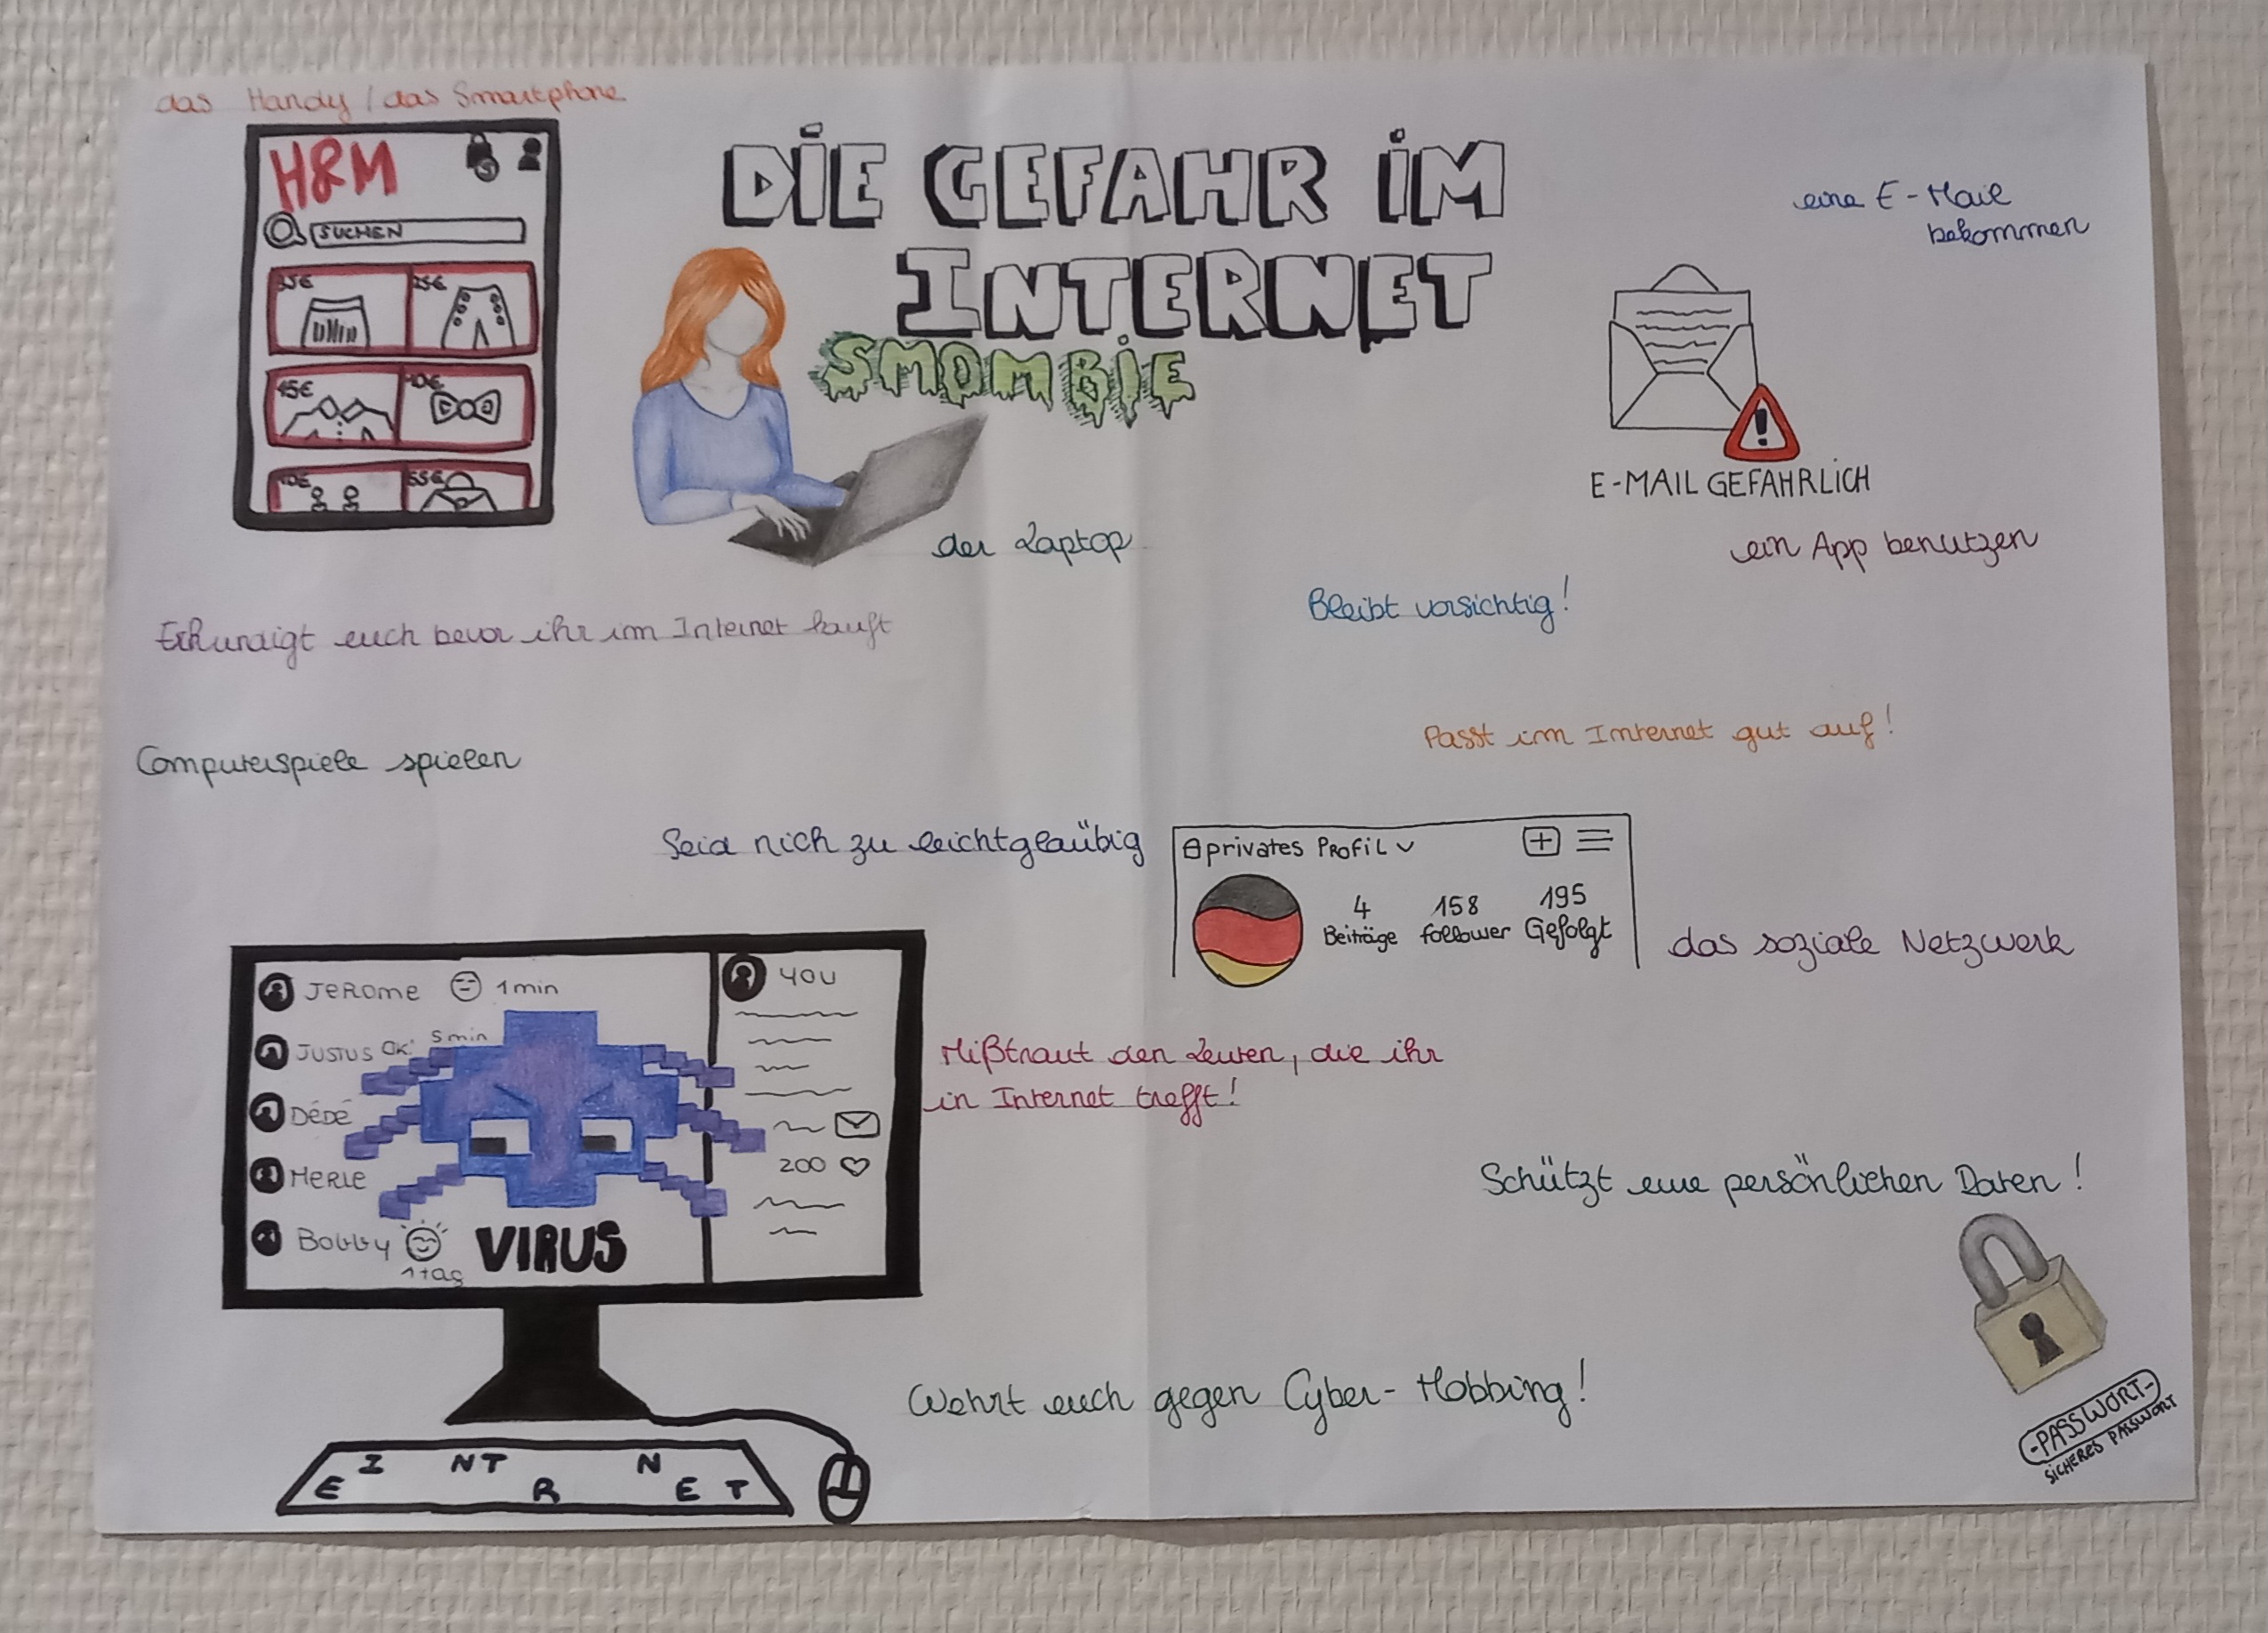 das Handy / das Smartphone
H&M
SUCHEN
35€ 25€
45€ 10€
10€ 55€
DIE GEFAHR IM
INTERNET
SMOMBIE
der Laptop
eine E-Mail
bekommen
E-MAIL GEFAHRLICH
ein App benutzen
Bleibt vorsichtig!
Erkundigt euch bevor ihr im Internet kauft
Passt im Internet gut auf!
Computerspiele spielen
Seid nich zu leichtglaübig
privates PROFIL
4 158 195
Beiträge follower Gefolgt
das soziale Netzwerk
JEROME 1 min
JUSTUS OK! 5 min
DÉDÉ
MERLE
BOBBY
1 tag
VIRUS
YOU
200
Mißtraut den Leuten, die ihr
in Internet trefft!
Schützt eure persönlichen Daten!
-PASSWORT-
SICHERES PASSWORT
Wehrt euch gegen Cyber-Mobbing!
E I NT R N E T